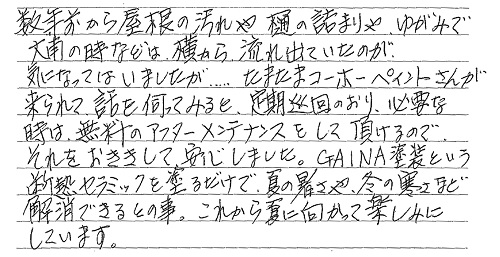 数年前から屋根の汚れや樋の詰まりや、ゆがみで
大雨の時などは、横から、流れ出ていたのが、
気になってはいましたが..... たまたまコーホーペイントさんが
来られて、話を伺ってみると、定期巡回のおり、必要な
時は、無料のアフターメンテナンスをして頂けるので、
それをおききして、安心しました。GAINA塗装という
断熱セラミックを塗るだけで、夏の暑さや、冬の寒さなど
解消できるとの事。これから夏に向かって楽しみに
しています。